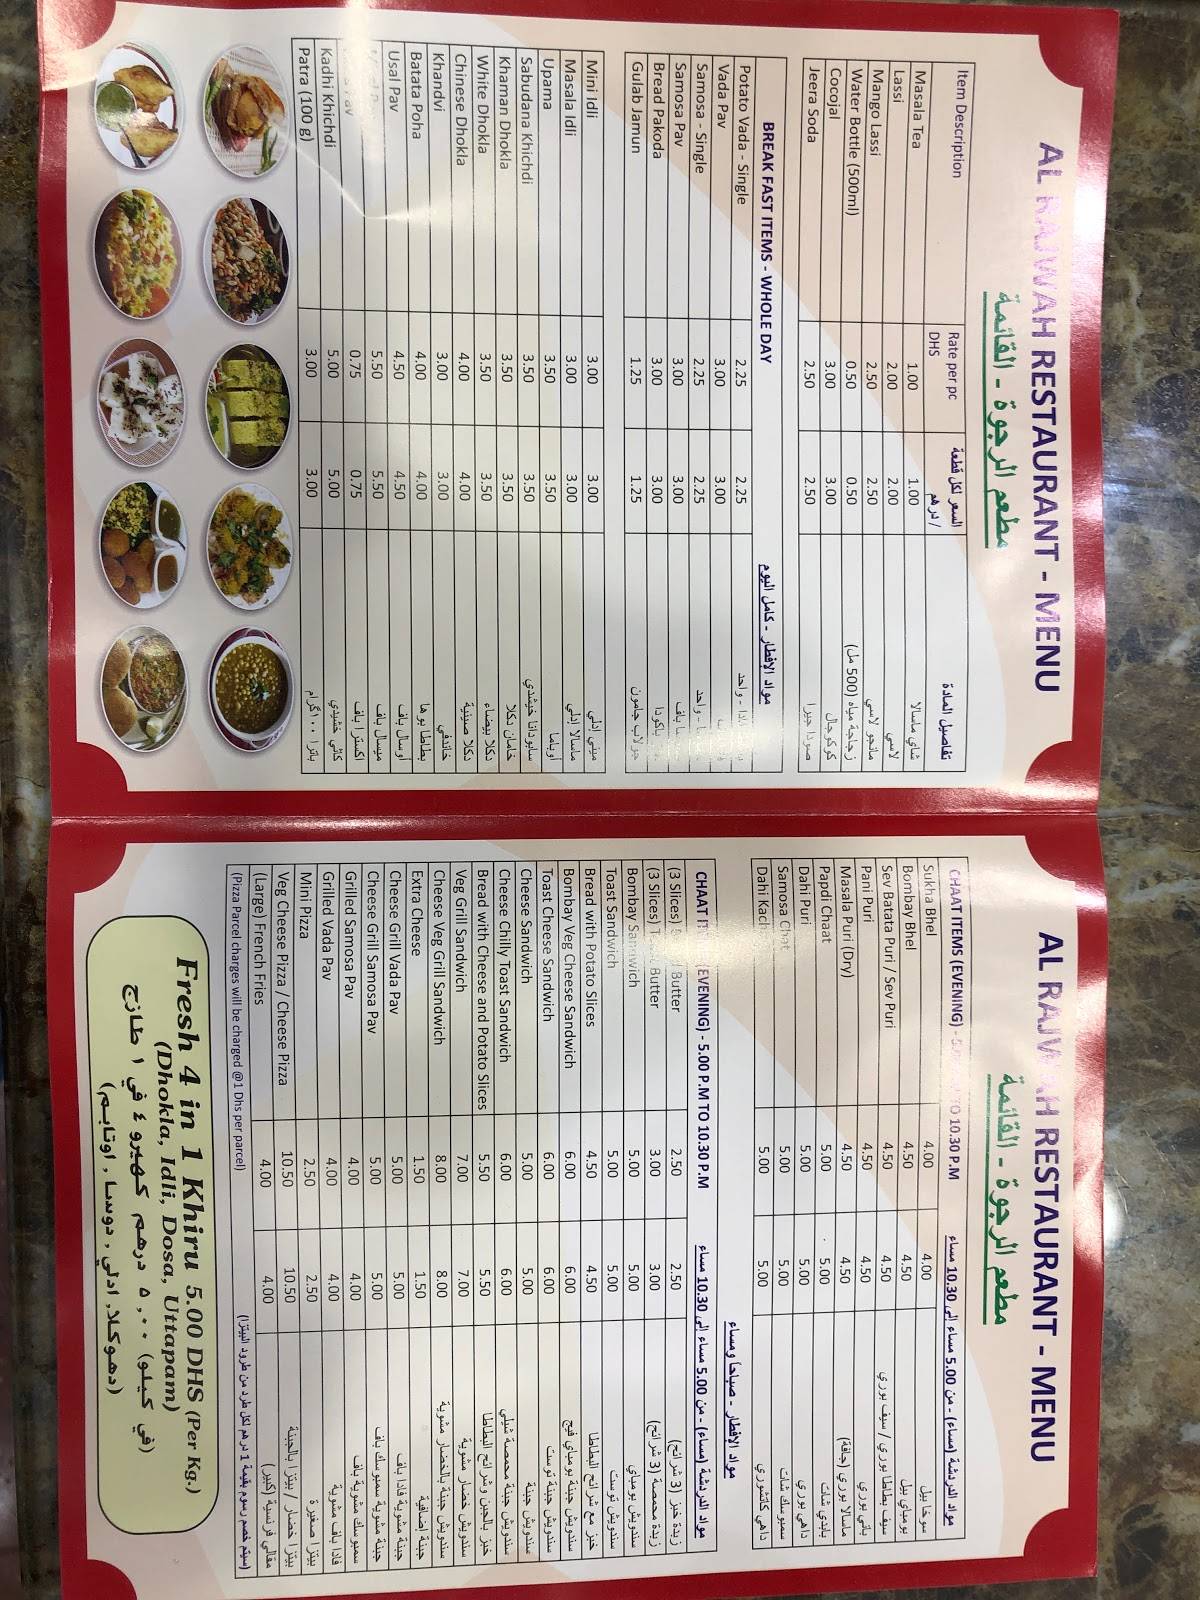 AL RAJWAH RESTAURANT - MENU
مطعم الرجوة - القائمة
Item Description Rate per pc DHS السعر لكل قطعة / درهم تفاصيل المادة
Masala Tea 1.00 1.00 شاي ماسالا
Lassi 2.00 2.00 لاسي
Mango Lassi 2.50 2.50 مانجو لاسي
Water Bottle (500ml) 0.50 0.50 زجاجة مياه (500 مل)
Cocojal 3.00 3.00 كوكو جال
Jeera Soda 2.50 2.50 صودا جيرا
BREAK FAST ITEMS - WHOLE DAY مواد الافطار - كامل اليوم
Potato Vada - Single 2.25 2.25 - واحد
Vada Pav 3.00 3.00
Samosa - Single 2.25 2.25 - واحد
Samosa Pav 3.00 3.00 باف
Bread Pakoda 3.00 3.00 باكودا
Gulab Jamun 1.25 1.25 جولاب جامون
Mini Idli 3.00 3.00 ميني إدلي
Masala Idli 3.00 3.00 ماسالا إدلي
Upama 3.50 3.50 أوباما
Sabudana Khichdi 3.50 3.50 سابودانا خيشدي
Khaman Dhokla 3.50 3.50 خامان دكلا
White Dhokla 3.50 3.50 دكلا بيضاء
Chinese Dhokla 4.00 4.00 دكلا صينية
Khandvi 3.00 3.00 خاندفي
Batata Poha 4.00 4.00 بطاطا بوها
Usal Pav 4.50 4.50 أوسال باف
5.50 5.50 ميسال باف
Pav 0.75 0.75 اكسترا باف
Kadhi Khichdi 5.00 5.00 كاثي خشيدي
Patra (100 g) 3.00 3.00 باترا ١٠٠ گرام
AL RAJWAH RESTAURANT - MENU
مطعم الرجوة - القائمة
CHAAT ITEMS (EVENING) - TO 10.30 P.M مواد الدردشة (مساء) - من 5.00 مساء إلى 10.30 مساء
Sukha Bhel 4.00 4.00 سوخا بيل
Bombay Bhel 4.50 4.50 بومباي بيل
Sev Batata Puri / Sev Puri 4.50 4.50 سيف بطاطا بوري / سيف بوري
Pani Puri 4.50 4.50 باني بوري
Masala Puri (Dry) 4.50 4.50 ماسالا بوري (جافة)
Papdi Chaat 5.00 5.00 بابدي شات
Dahi Puri 5.00 5.00 داهي بوري
Samosa Chat 5.00 5.00 سمبوسك شات
Dahi Kach 5.00 5.00 داهي كاتشوري
مواد الإفطار - صباحا ومساء
CHAAT (EVENING) - 5.00 P.M TO 10.30 P.M مواد الدردشة (مساء) - من 5.00 مساء إلى 10.30 مساء
(3 Slices) Butter 2.50 2.50 زبدة خبز (3 شرائح)
(3 Slices) Butter 3.00 3.00 زبدة محمصة (3 شرائح)
Bombay Sandwich 5.00 5.00 سندويش بومباي
Toast Sandwich 5.00 5.00 سندويش توست
Bread with Potato Slices 4.50 4.50 خبز مع شرائح البطاطا
Bombay Veg Cheese Sandwich 6.00 6.00 سندويش جبنة بومباي فيج
Toast Cheese Sandwich 6.00 6.00 سندويش جبنة توست
Cheese Sandwich 5.00 5.00 سندويش جبنة
Cheese Chilly Toast Sandwich 6.00 6.00 سندويش جبنة محمصة شيلي
Bread with Cheese and Potato Slices 5.50 5.50 خبز بالجبن وشرائح البطاطا
Veg Grill Sandwich 7.00 7.00 سندويش خضار مشوية
Cheese Veg Grill Sandwich 8.00 8.00 سندويش جبنة بالخضار مشوية
Extra Cheese 1.50 1.50 جبنة إضافية
Cheese Grill Vada Pav 5.00 5.00 جبنة مشوية فادا باف
Cheese Grill Samosa Pav 5.00 5.00 جبنة مشوية سمبوسك باف
Grilled Samosa Pav 4.00 4.00 سمبوسك مشوية باف
Grilled Vada Pav 4.00 4.00 فادا باف مشوية
Mini Pizza 2.50 2.50 بيتزا صغيرة
Veg Cheese Pizza / Cheese Pizza 10.50 10.50 بيتزا خضار / بيتزا بالجبنة
(Large) French Fries 4.00 4.00 مقالي فرنسية (كبير)
(Pizza Parcel charges will be charged @1 Dhs per parcel) (سيتم خصم رسوم بقيمة 1 درهم لكل طرد من طرود البيتزا)
Fresh 4 in 1 Khiru 5.00 DHS (Per Kg.)
(Dhokla, Idli, Dosa, Uttapam)
طازج ١ في ٤ كهيرو درهم ٥,٠٠ (في كيلو)
(دهوكلا, ادلي, دوسا, اوتابم)